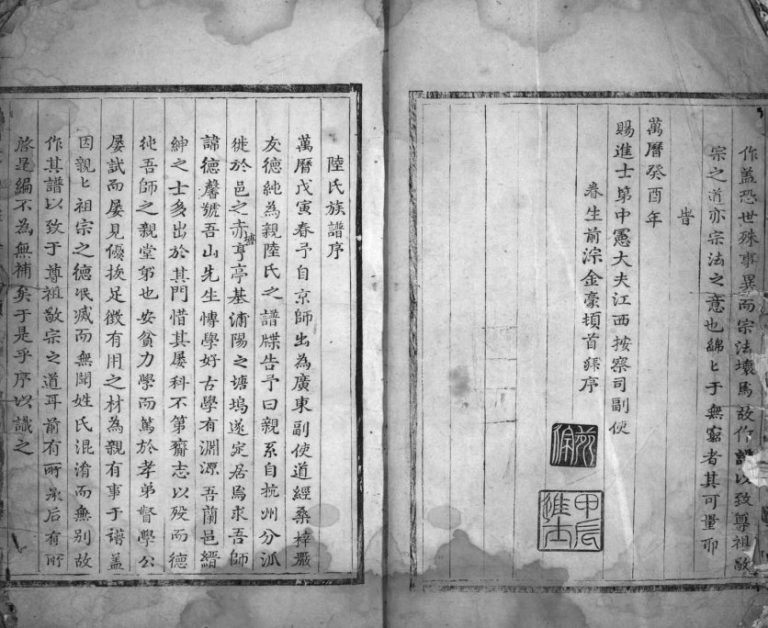 作蓋恐世殊事異而宗法壞焉故作譜以致尊祖敬
宗之道亦宗法之意也綿匕于無窮者其可量耶
旹
萬曆癸酉年
賜進士第中憲大夫江西按察司副使
眷生前淙金豪頓首拜序
甲辰進士
陸氏族譜序
萬曆戊寅春予自京師出為廣東副使道經桑梓嚴
友德純為親陸氏之譜牒告予曰親系自杭州分派
徙於邑之赤塘亨亭基浦陽之塘塢遂定居焉求吾師
諱德馨號吾山先生愽學好古學有淵源吾蘭邑縉
紳之士多出於其門惜其屡科不第齎志以殁而德
純吾師之親堂弟也安貧力學而篤於孝弟督學公
屡試而屡見優挨足徴有用之材為親有事于譜蓋
因親匕祖宗之德泯滅而無聞姓氏混淆而無别故
作其譜以致于尊祖敬宗之道耳前有所承后有所
啓是編不為無補矣于是乎序以識之